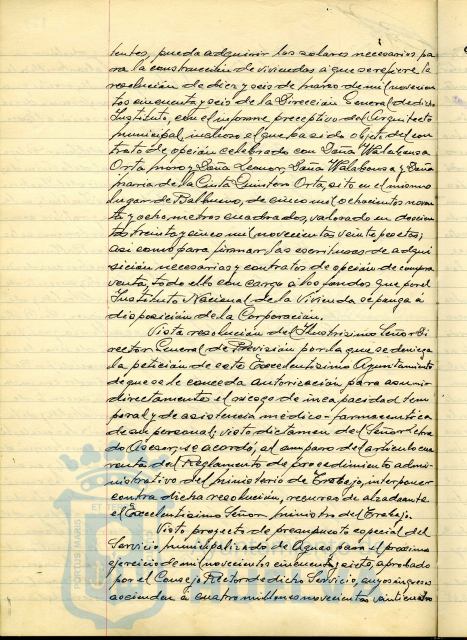 tentes, pueda adquirir los solares necesarios pa
ra la construcción de viviendas a que se refiere la
resolución de diez y seis de marzo de mil novecien
tos cincuenta y seis de la Dirección General de dicho
Instituto, con el informe preceptivo del Arquitecto
municipal, incluso el que ha sido objeto del con
trato de opción celebrado con Doña Walabonsa
Orta moro y Doña Leonor, Doña Walabonsa y Doña
maria de la Cinta Quintero Orta, sito en el mismo
lugar de Balbueno, de cinco mil ochocientos noven
ta y ocho metros cuadrados, valorado en doscien
tas treinta y cinco mil novecientas veinte pesetas;
así como para firmar las escrituras de adqui
sición necesarias y contratos de opción de compra
venta, todo ello con cargo a los fondos que por el
Instituto Nacional de la Vivienda se ponga a
disposición de la Corporación.
Vista resolución del Ilustrísimo Señor Di
rector General de Previsión por la que se deniega
la petición de este Excelentísimo Ayuntamiento
de que se le conceda autorización para asumir
directamente el riesgo de incapacidad tem
poral y de asistencia médico-farmaceutica
de su personal; visto dictamen del Señor Letra
do Asesor, se acordó, al amparo del artículo cua
renta del Reglamento de procedimiento admi
nistrativo del ministerio de Trabajo, interponer
contra dicha resolución, recurso de alzada ante
el Excelentísimo Señor ministro del Trabajo.
Visto proyecto de presupuesto especial del
Servicio municipalizado de Aguas para el proximo
ejercicio de mil novecientos cincuenta y siete, aprobado
por el Consejo Rector de dicho Servicio, cuyos ingresos
ascienden a cuatro millones novecientas veinticuatro
PORTUS MARIS ET TE